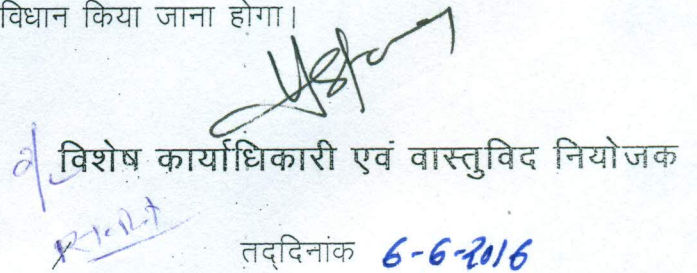 विधान किया जाना होगा।
विशेष कार्याधिकारी एवं वास्तुविद नियोजक
तद्दिनांक 6-6-2016